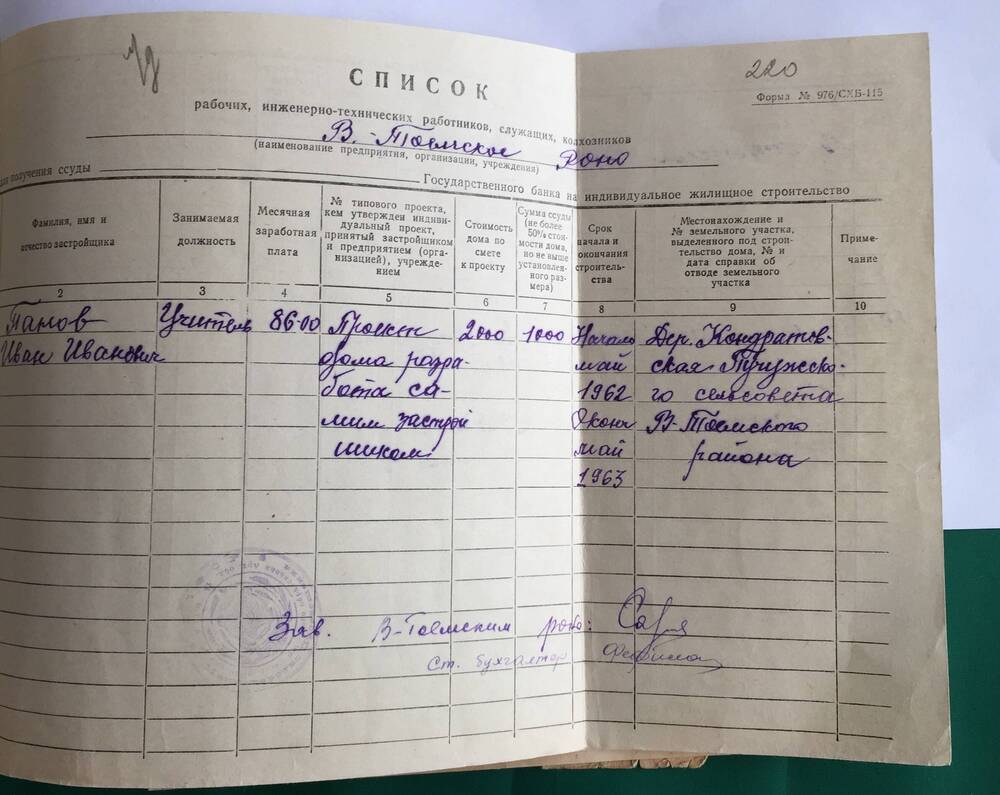 2200
Форма № 976/СХБ-115
СПИСОК
рабочих, инженерно-технических работников, служащих, колхозников
В. Тоемское роно
(наименование предприятия, организации, учреждения)
получения ссуды Государственного банка на индивидуальное жилищное строительство
Фамилия, имя и
отчество застройщика
Занимаемая
должность
Месячная
заработная
плата
№ типового проекта,
кем утвержден индиви-
дуальный проект,
принятый застройщиком
и предприятием (орга-
низацией), учрежде-
нием
Стоимость
дома по
смете
к проекту
Сумма ссуды
(не более
50% стои-
мости дома,
но не выше
установлен-
ного раз-
мера)
Срок
начала и
окончания
строитель-
ства
Местонахождение и
№ земельного участка,
выделенного под строи-
тельство дома, и №
дата справки об
отводе земельного
участка
Приме-
чание
2 3 4 5 6 7 8 9 10
Иван Иванович
Учитель
86-00
Проект
дома разра-
ботан са-
мим застрой
щиком
2000
1000
Начало
май
1962
Оконч
май
1963
Дер. Кондратов-
ская
го сельсовета
В-Тоемского
района
Зав. В-Тоемским роно:
Ст. бухгалтер